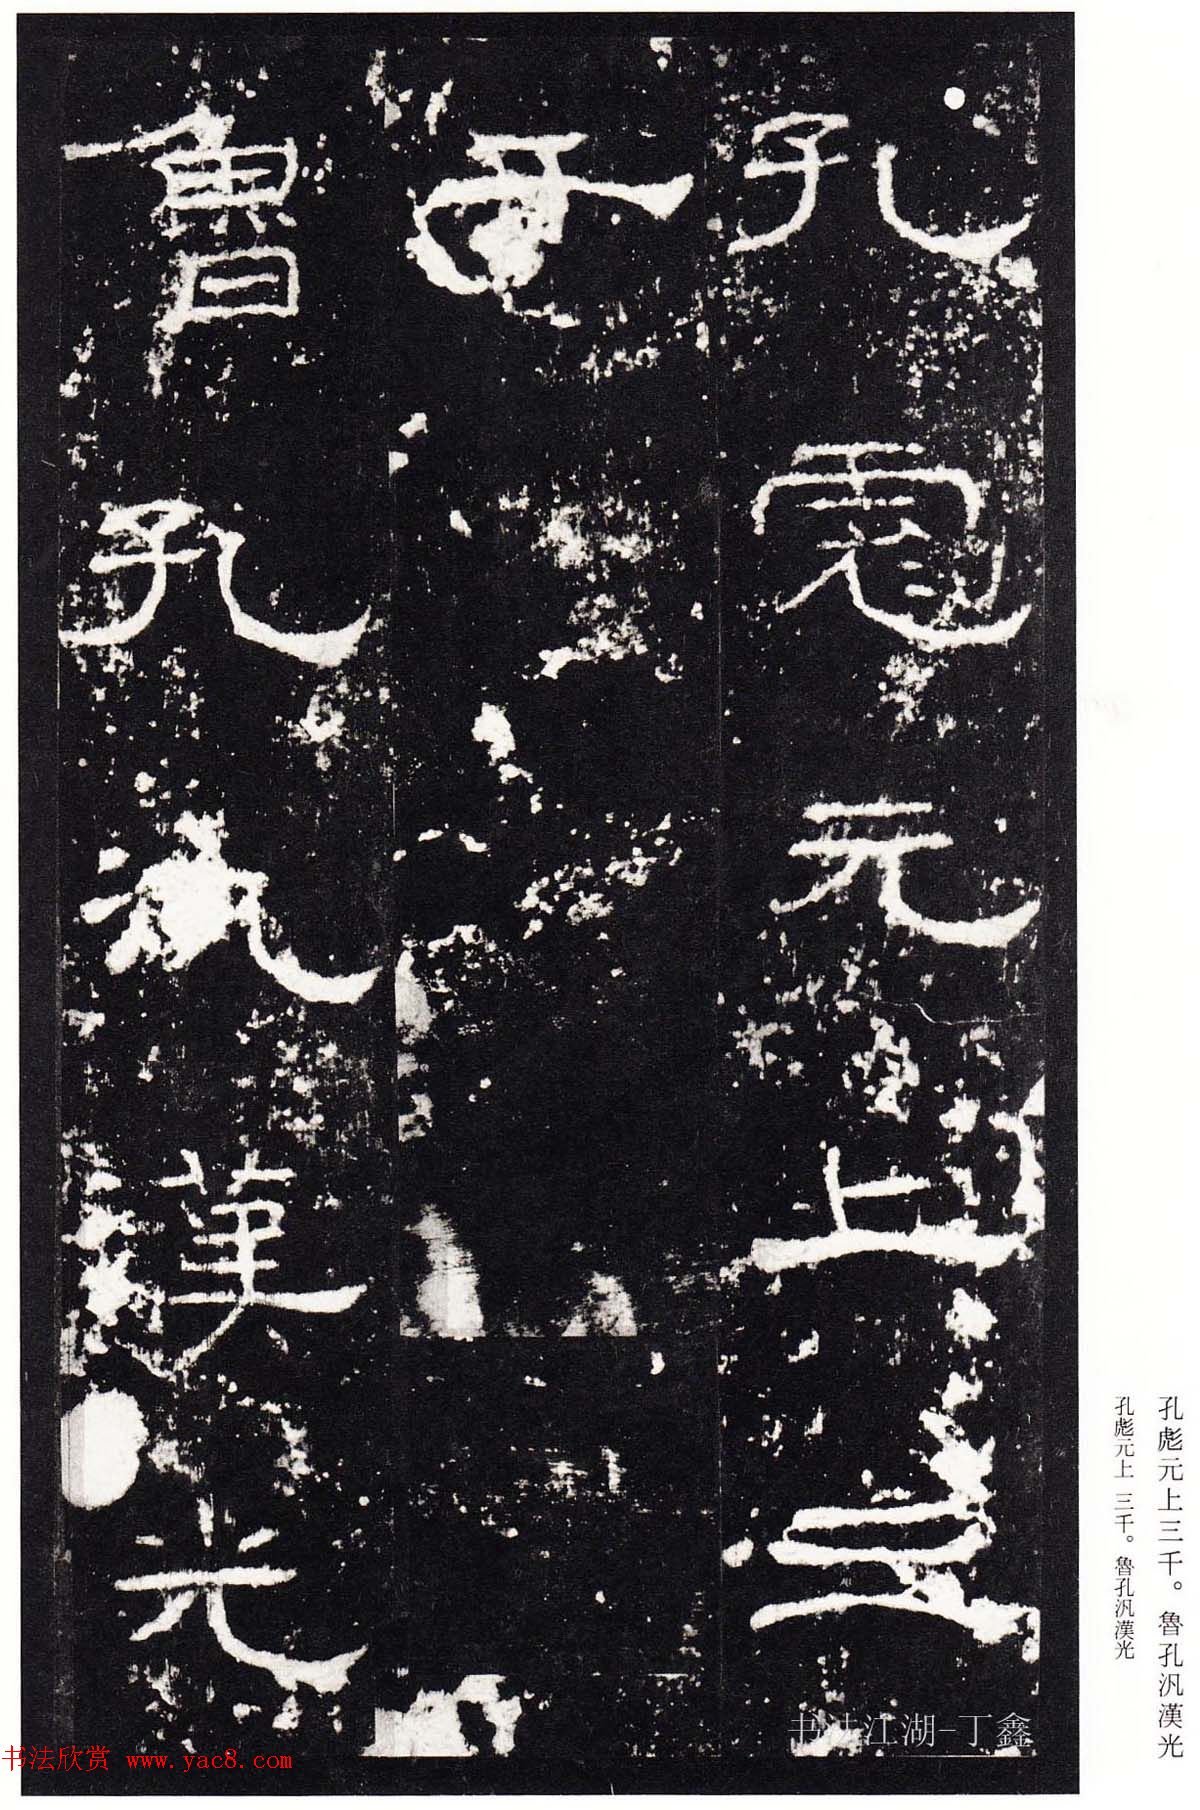 孔彪元上三千。魯孔汎漢光
孔彪元上 三千。魯孔汎漢光
孔彪元上三
千
魯孔汎漢光
书法江湖-丁鑫
书法欣赏 www.yac8.com